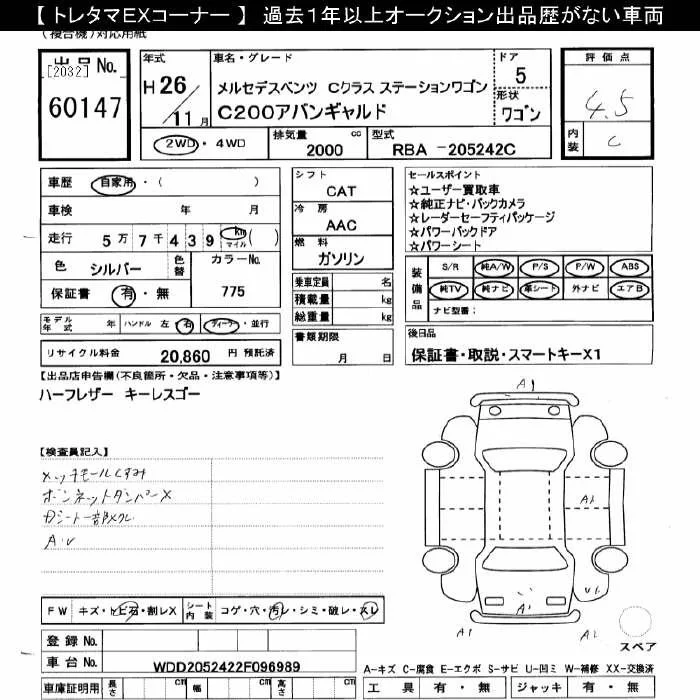 【 トレタマEXコーナー 】 過去1年以上オークション出品歴がない車両
(複合機)対応用紙
出品 No.
[2032]
60147
年式
H 26
11 月
車名・グレード
メルセデスベンツ Cクラス ステーションワゴン
C200アバンギャルド
ドア
5
形状
ワゴン
2WD・4WD
排気量 cc
2000
型式
RBA -205242C
評価点
4.5
内装
C
車歴 自家用・( )
車検 年 月
走行 5万7千439 km マイル ( )
色 シルバー 色替
カラーNo.
775
保証書 有・無
モデル年式 年 ハンドル 左 右 ディーラー・並行
リサイクル料金 20,860 円 預託済
シフト
CAT
冷房
AAC
燃料
ガソリン
乗車定員 名
積載量 kg
総重量 kg
書類期限
月 日
セールスポイント
☆ユーザー買取車
☆純正ナビ・バックカメラ
☆レーダーセーフティパッケージ
☆パワーバックドア
☆パワーシート
装備品
S/R 純A/W P/S P/W ABS
純TV 純ナビ 革シート 外ナビ エアB
ナビ型番:
後日品
保証書・取説・スマートキーX1
【出品店申告欄(不良箇所・欠品・注意事項等)】
ハーフレザー キーレスゴー
【検査員記入】
メッキモールくすみ
ボンネットダンパーX
A1
A1
U1
A1
A1
A2
スペア
FW キズ・トビ石・割レX
シート内装 コゲ・穴・汚レ・シミ・破レ・スレ
登録 No.
車台 No. WDD2052422F096989
車庫証明用 長さ cm 幅 cm 高さ cm
A-キズ C-腐食 E-エクボ S-サビ U-凹ミ W-補修 XX-交換済
工具 有・無 ジャッキ 有・無